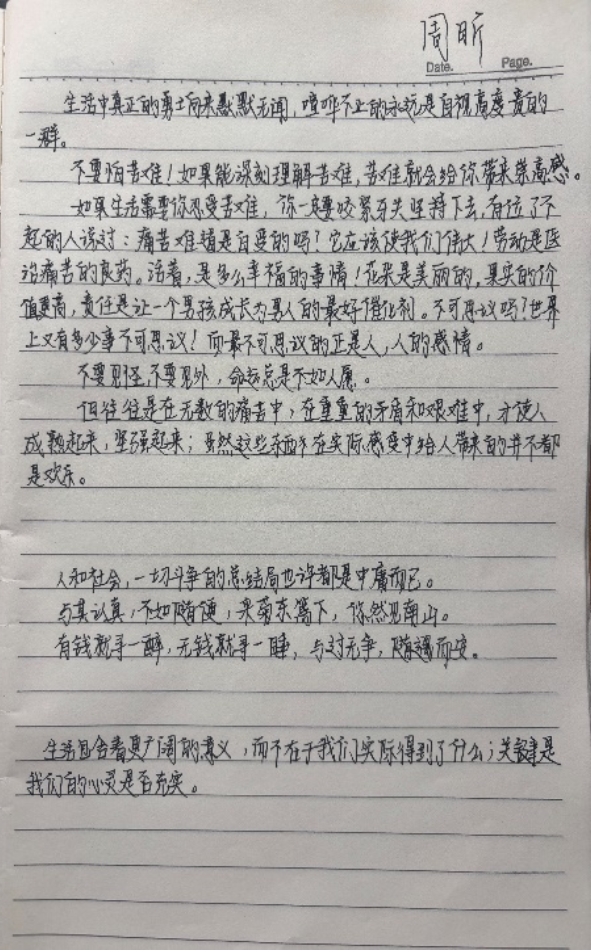 周昕
Date. Page.
生活中真正的勇士向来默默无闻，喧哗不止的永远是自视高度贵的
一群。
不要怕苦难！如果能深刻理解苦难，苦难就会给你带来崇高感。
如果生活需要你忍受苦难，你一定要咬紧牙关坚持下去，有位了不
起的人说过：痛苦难道是白受的吗？它应该使我们伟大！劳动是医
治痛苦的良药。活着，是多么幸福的事情！花朵是美丽的，果实的价
值更高，责任是让一个男孩成长为男人的最好催化剂。不可思议吗？世界
上又有多少事不可思议！而最不可思议的正是人，人的感情。
不要见怪，不要见外，命运总是不如人愿。
但往往是在无数的痛苦中，在重重的矛盾和艰难中，才使人
成熟起来，坚强起来；虽然这些东西在实际感受中给人带来的并不都
是欢乐。
人和社会，一切斗争的总结局也许都是中庸而已。
与其认真，不如随便，采菊东篱下，悠然见南山。
有钱就寻一醉，无钱就寻一睡，与世无争，随遇而安。
生活包含着更广阔的意义，而不在于我们实际得到了什么；关键是
我们的心灵是否充实。